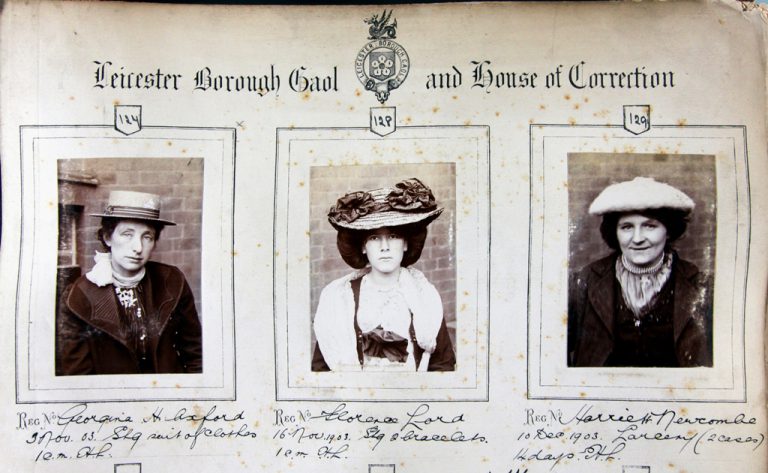 LEICESTER BOROUGH GAOL
Leicester Borough Gaol and House of Correction
124 128 129
REG Nº Georgina H. Axford
3 Nov. 03. Stg suit of clothes
1 c.m. H.L.
REG Nº Florence Lord
16 Nov. 1903. Stg 2 bracelets.
1 c.m. H.L.
REG Nº Harriett Newcombe
10 Dec. 1903. Larceny (2 cases)
14 days. H.L.